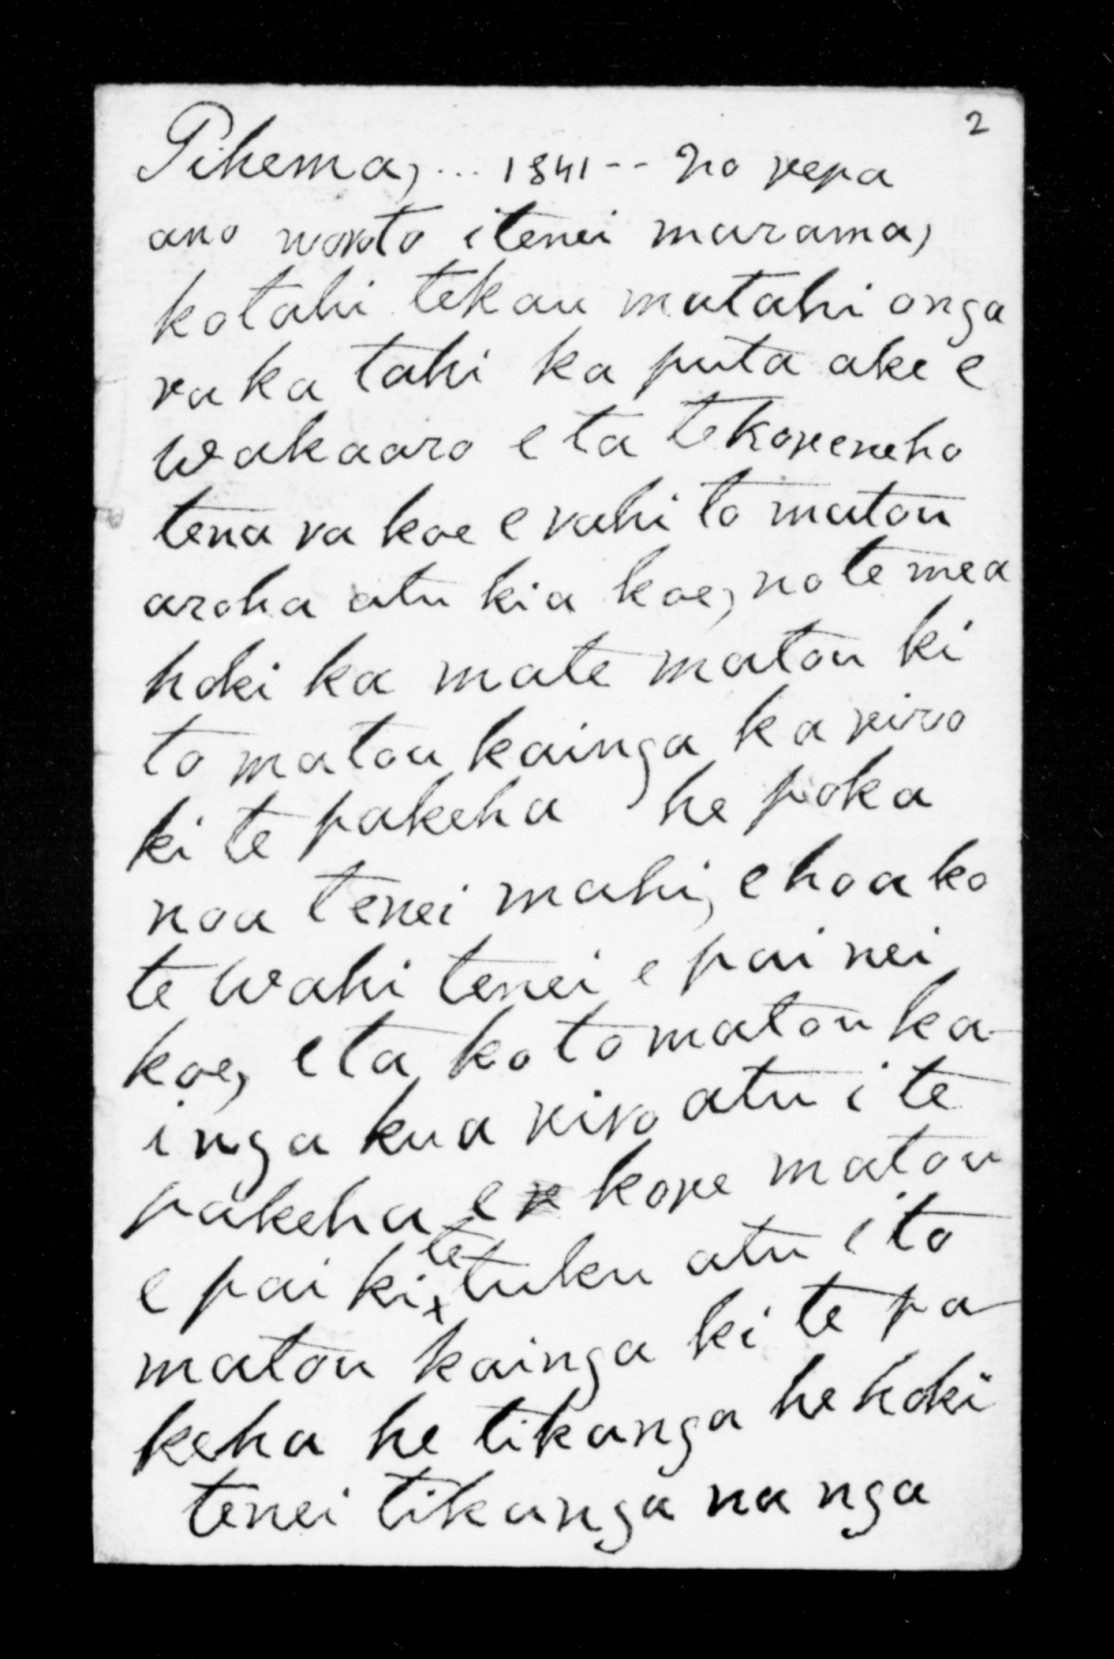 2
Tihema, ... 1841 -- No repa
ano worto itenei marama,
kotahi tekau matahi onga
ra ka tahi ka puta ake e
wakaaro e ta te korereho
tena ra koe e rahi to matou
aroha atu kia koe, no te mea
hoki ka mate matou ki
to matou kainga ka riro
ki te pakeha he poka
noa tenei mahi, ehoa ko
te wahi tenei e pai nei
koe, eta ko to matou ka
inga kua riro atu i te
pakeha e kore matou
e pai ki te tuku atu i to
matou kainga ki te pa
keha he tikanga he hoki
tenei tikanga na nga